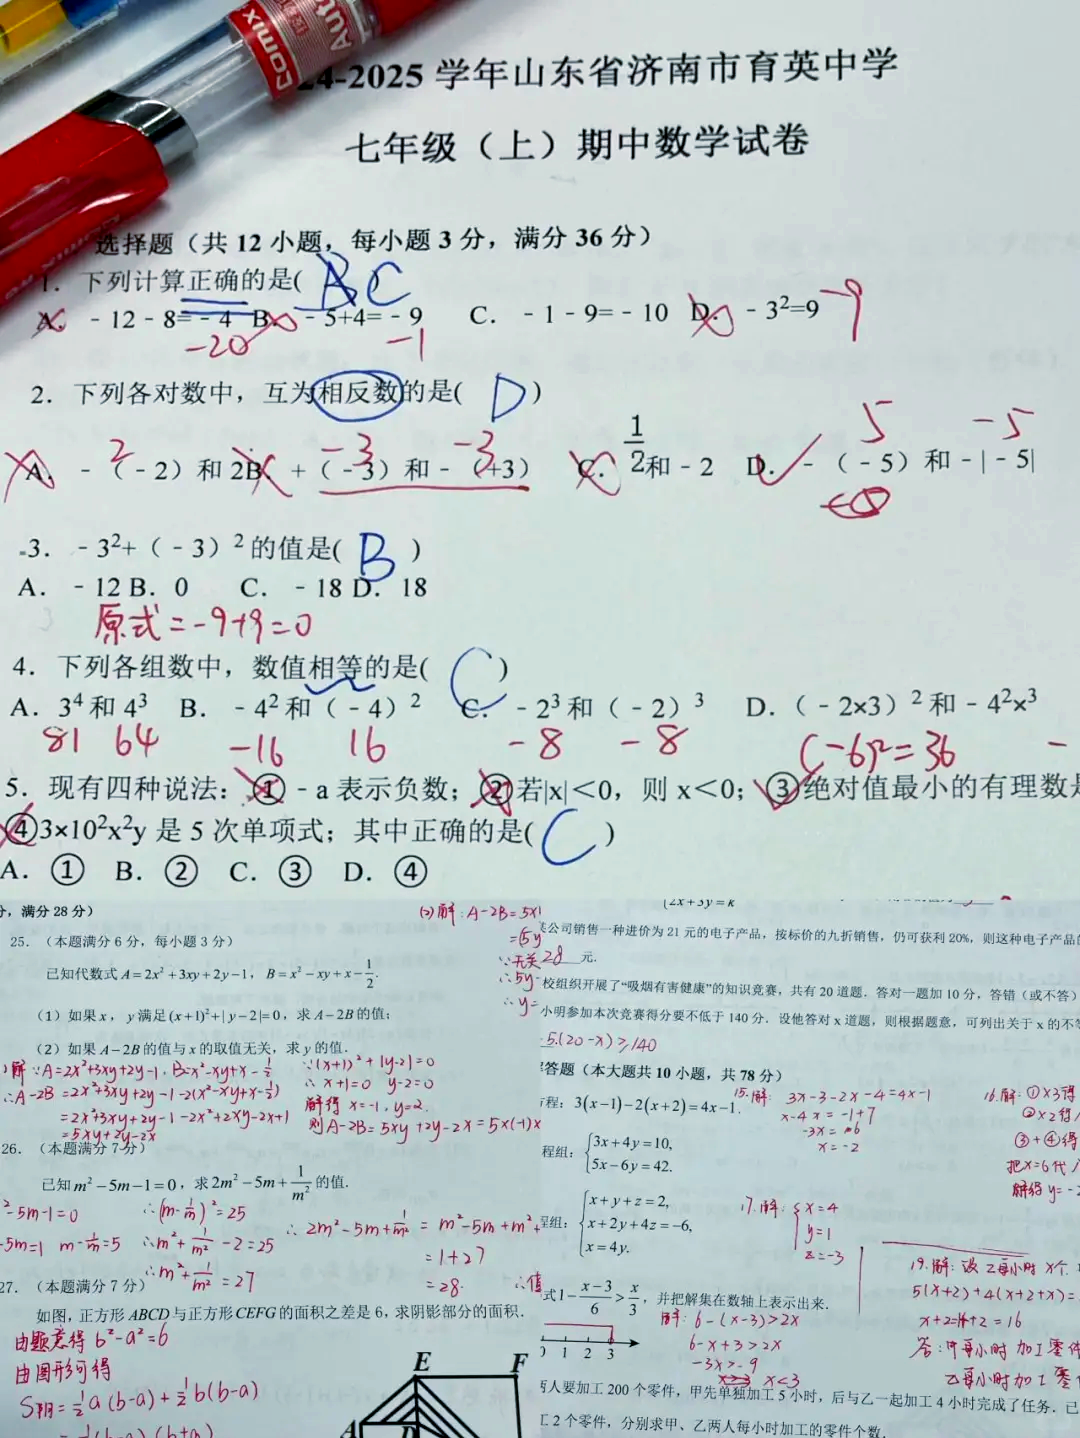 comix
Auto
24-2025 学年山东省济南市育英中学
七年级（上）期中数学试卷
选择题（共 12 小题，每小题 3 分，满分 36 分）
1. 下列计算正确的是( B C )
A. ﹣12﹣8=﹣4 B. ﹣5+4=﹣9 C. ﹣1﹣9=﹣10 D. ﹣3²=9 -9
-20 -1
2. 下列各对数中，互为相反数的是( D )
2 -3 -3 5 -5
A. ﹣（﹣2）和 2 B. +（﹣3）和﹣（+3） C. 1/2 和﹣2 D. ﹣（﹣5）和﹣|﹣5|
3. ﹣3²+（﹣3）² 的值是( B )
A. ﹣12 B. 0 C. ﹣18 D. 18
原式=-9+9=0
4. 下列各组数中，数值相等的是( C )
A. 3⁴ 和 4³ B. ﹣4² 和（﹣4）² C. ﹣2³ 和（﹣2）³ D.（﹣2×3）² 和﹣4²×³
81 64 -16 16 -8 -8 (-6)²=36 -
5. 现有四种说法：①﹣a 表示负数；②若|x|＜0，则 x＜0；③绝对值最小的有理数是
④3×10²x²y 是 5 次单项式；其中正确的是( C )
A. ① B. ② C. ③ D. ④
分，满分 28 分）
25. （本题满分 6 分，每小题 3 分）
已知代数式 A=2x²+3xy+2y-1，B=x²-xy+x-1/2.
（1）如果 x，y 满足 (x+1)²+|y-2|=0，求 A-2B 的值；
（2）如果 A-2B 的值与 x 的取值无关，求 y 的值.
解:∵A=2x²+3xy+2y-1，B=x²-xy+x-1/2
∴A-2B=2x²+3xy+2y-1-2(x²-xy+x-1/2)
=2x²+3xy+2y-1-2x²+2xy-2x+1
=5xy+2y-2x
∵(x+1)²+|y-2|=0
∴x+1=0 y-2=0
解得 x=-1，y=2.
则A-2B=5xy+2y-2x=5×(-1)×
(2)解:A-2B=5x
=(5y
∵无关
∴5y-
∴y=
26. （本题满分 7 分）
已知 m²-5m-1=0，求 2m²-5m+1/m² 的值.
²-5m-1=0
-5m=1 m-1/m=5
∴(m-1/m)²=25
∴m²+1/m²-2=25
∴m²+1/m²=27
∴2m²-5m+1/m²=m²-5m+m²+
=1+27
=28. ∴值
27. （本题满分 7 分）
如图，正方形 ABCD 与正方形 CEFG 的面积之差是 6，求阴影部分的面积.
由题意得 b²-a²=6
由图形可得
S阴=1/2a(b-a)+1/2b(b-a)
=1/2(b-a)(b+a)
E F
A D
(2x+3y=k
公司销售一种进价为 21 元的电子产品，按标价的九折销售，仍可获利 20%，则这种电子产品的
28 元.
校组织开展了“吸烟有害健康”的知识竞赛，共有 20 道题．答对一题加 10 分，答错（或不答）
小明参加本次竞赛得分要不低于 140 分．设他答对 x 道题，则根据题意，可列出关于 x 的不等
-5(20-x)≥140
答题（本大题共 10 小题，共 78 分）
程：3(x-1)-2(x+2)=4x-1.
15.解: 3x-3-2x-4=4x-1
x-4x=-1+7
-3x=6
x=-2
16.解:①×3得
②×2得
③+④得
把x=6代入
解得 y=-2
程组：{3x+4y=10,
5x-6y=42.
程组：{x+y+z=2,
x+2y+4z=-6,
x=4y.
17.解:{x=4
y=1
z=-3
式 1-(x-3)/6>x/3，并把解集在数轴上表示出来.
解:6-(x-3)>2x
6-x+3>2x
-3x>-9
x<3
1 2 3
19.解:设乙每小时x个
5(x+2)+4(x+2+x)=
x+2=14+2=16
答:甲每小时加工零件
乙每小时加工零
两人要加工 200 个零件，甲先单独加工 5 小时，后与乙一起加工 4 小时完成了任务．已
工 2 个零件，分别求甲、乙两人每小时加工的零件个数.